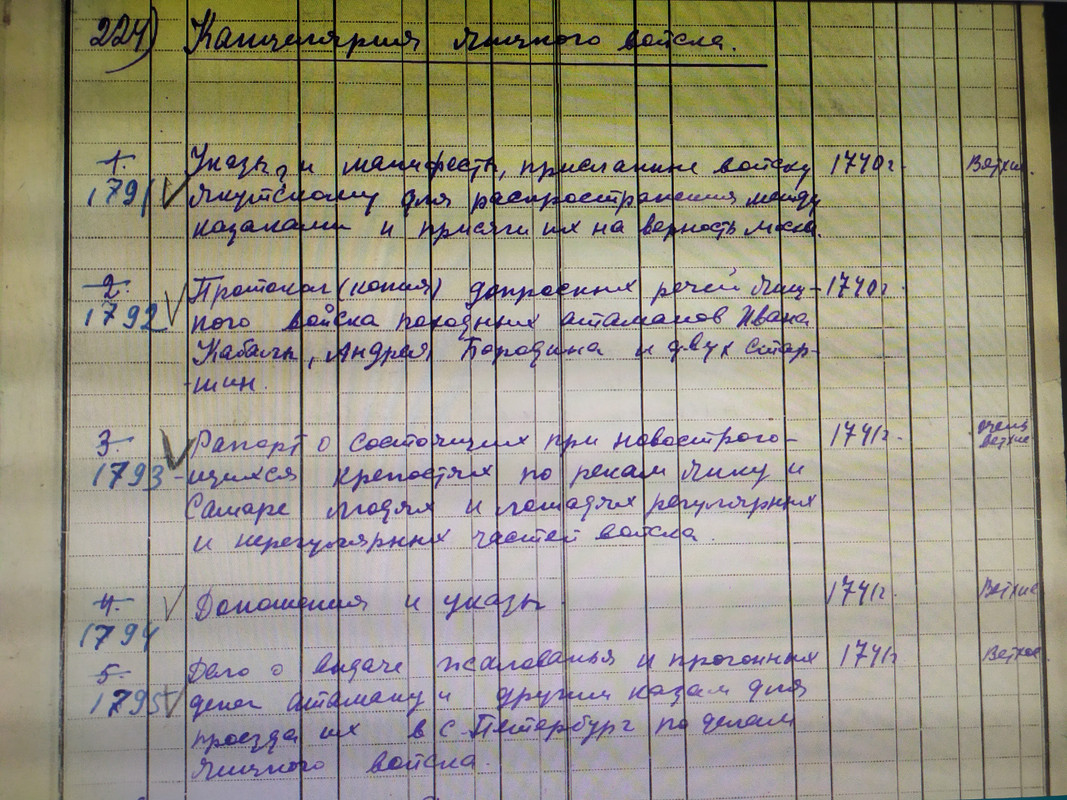 224) Канцелярия Яицкого войска.
1. Указы и манифесты, присланные войску 1740 г. Ветхие.
1791 Якутскому для распространения между
казаками и присяги их на верность
2. Протокол (копия) допросных речей Яиц- 1740 г.
1792 кого войска походных атаманов Ивана
Андрея Бородина и двух стар-
-шин.
3. Рапорт о состоящих при новострою- 1741 г. очень
ветхие
1793 -щихся крепостях по рекам Яику и
Самаре людях и лошадях регулярных
и нерегулярных частей войска.
4. Доношения и указы. 1741 г. Ветхие
1794
5. Дело о выдаче жалованья и прогонных 1741 г. Ветхое
1795 денег атаману и другим казам для
проезда их в С-Петербург по делам
Яицкого войска.